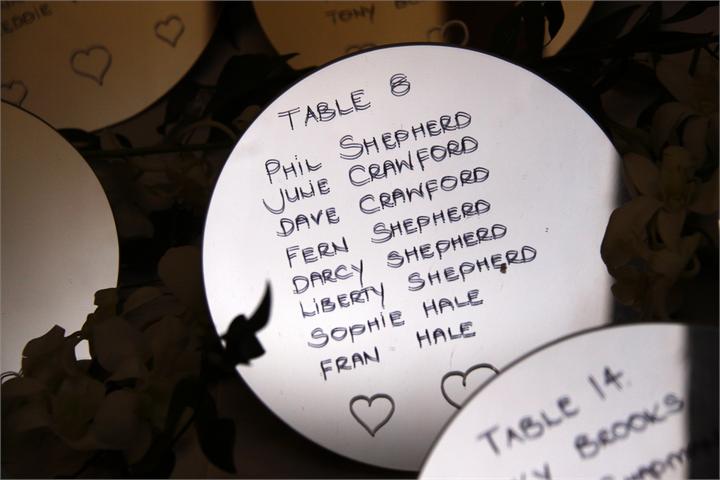 TONY
TABLE 8
PHIL SHEPHERD
JULIE CRAWFORD
DAVE CRAWFORD
FERN SHEPHERD
DARCY SHEPHERD
LIBERTY SHEPHERD
SOPHIE HALE
FRAN HALE
TABLE 14
BROOKS